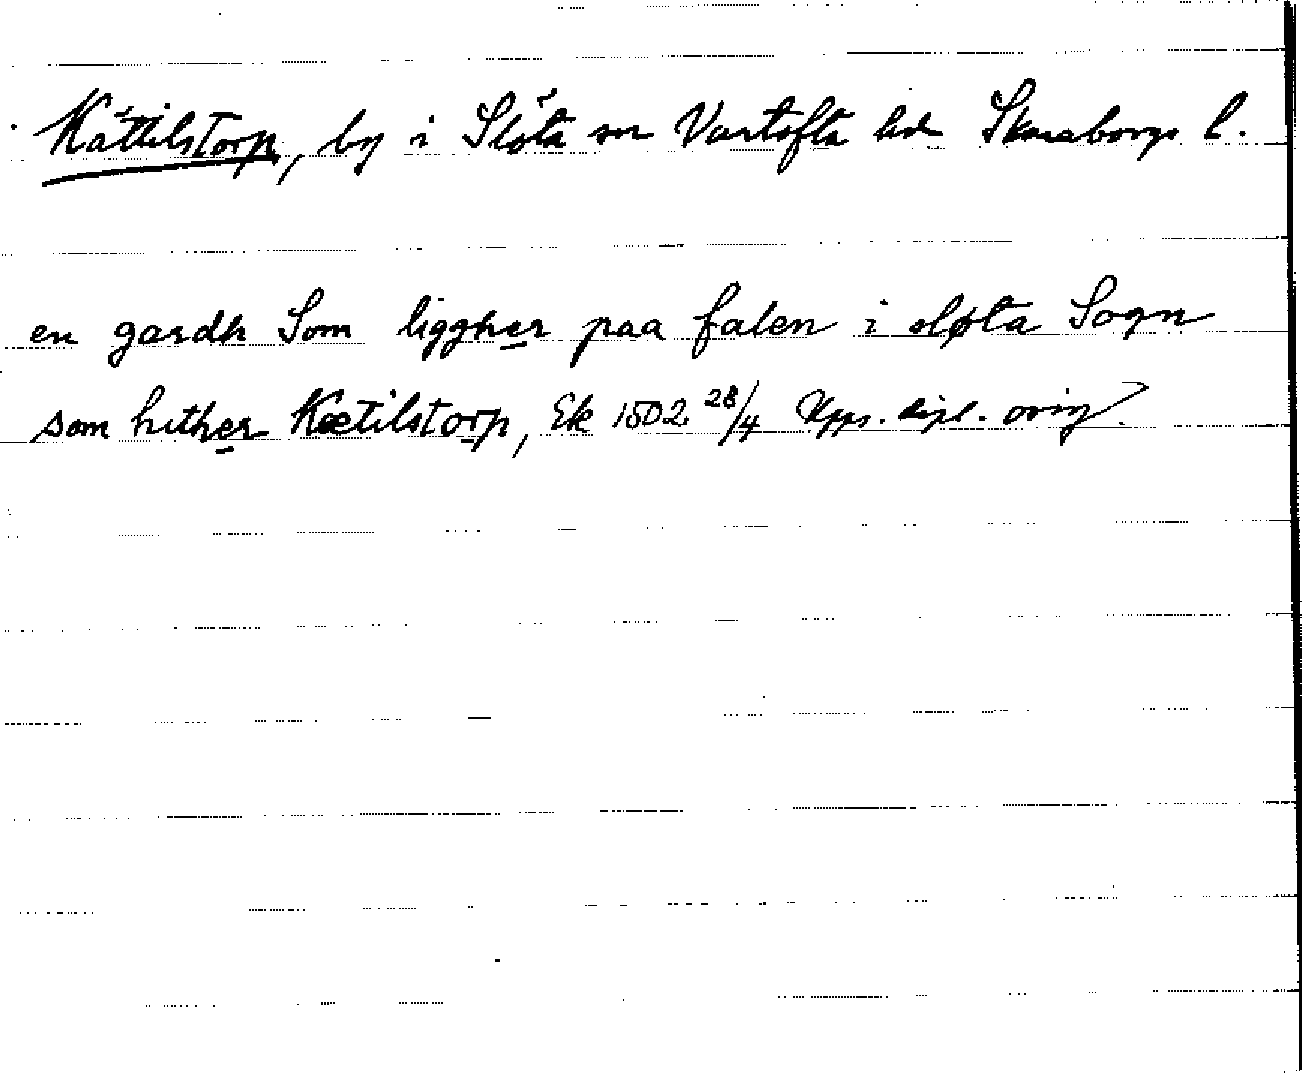 Kättilstorp, by i Slöta sn Vartofta hd Skaraborgs l.
en gardh Som liggher paa falen i sløta Sogn
som hether Kætilstorp, Ek 1502 28/4 Upps. dipl. orig.